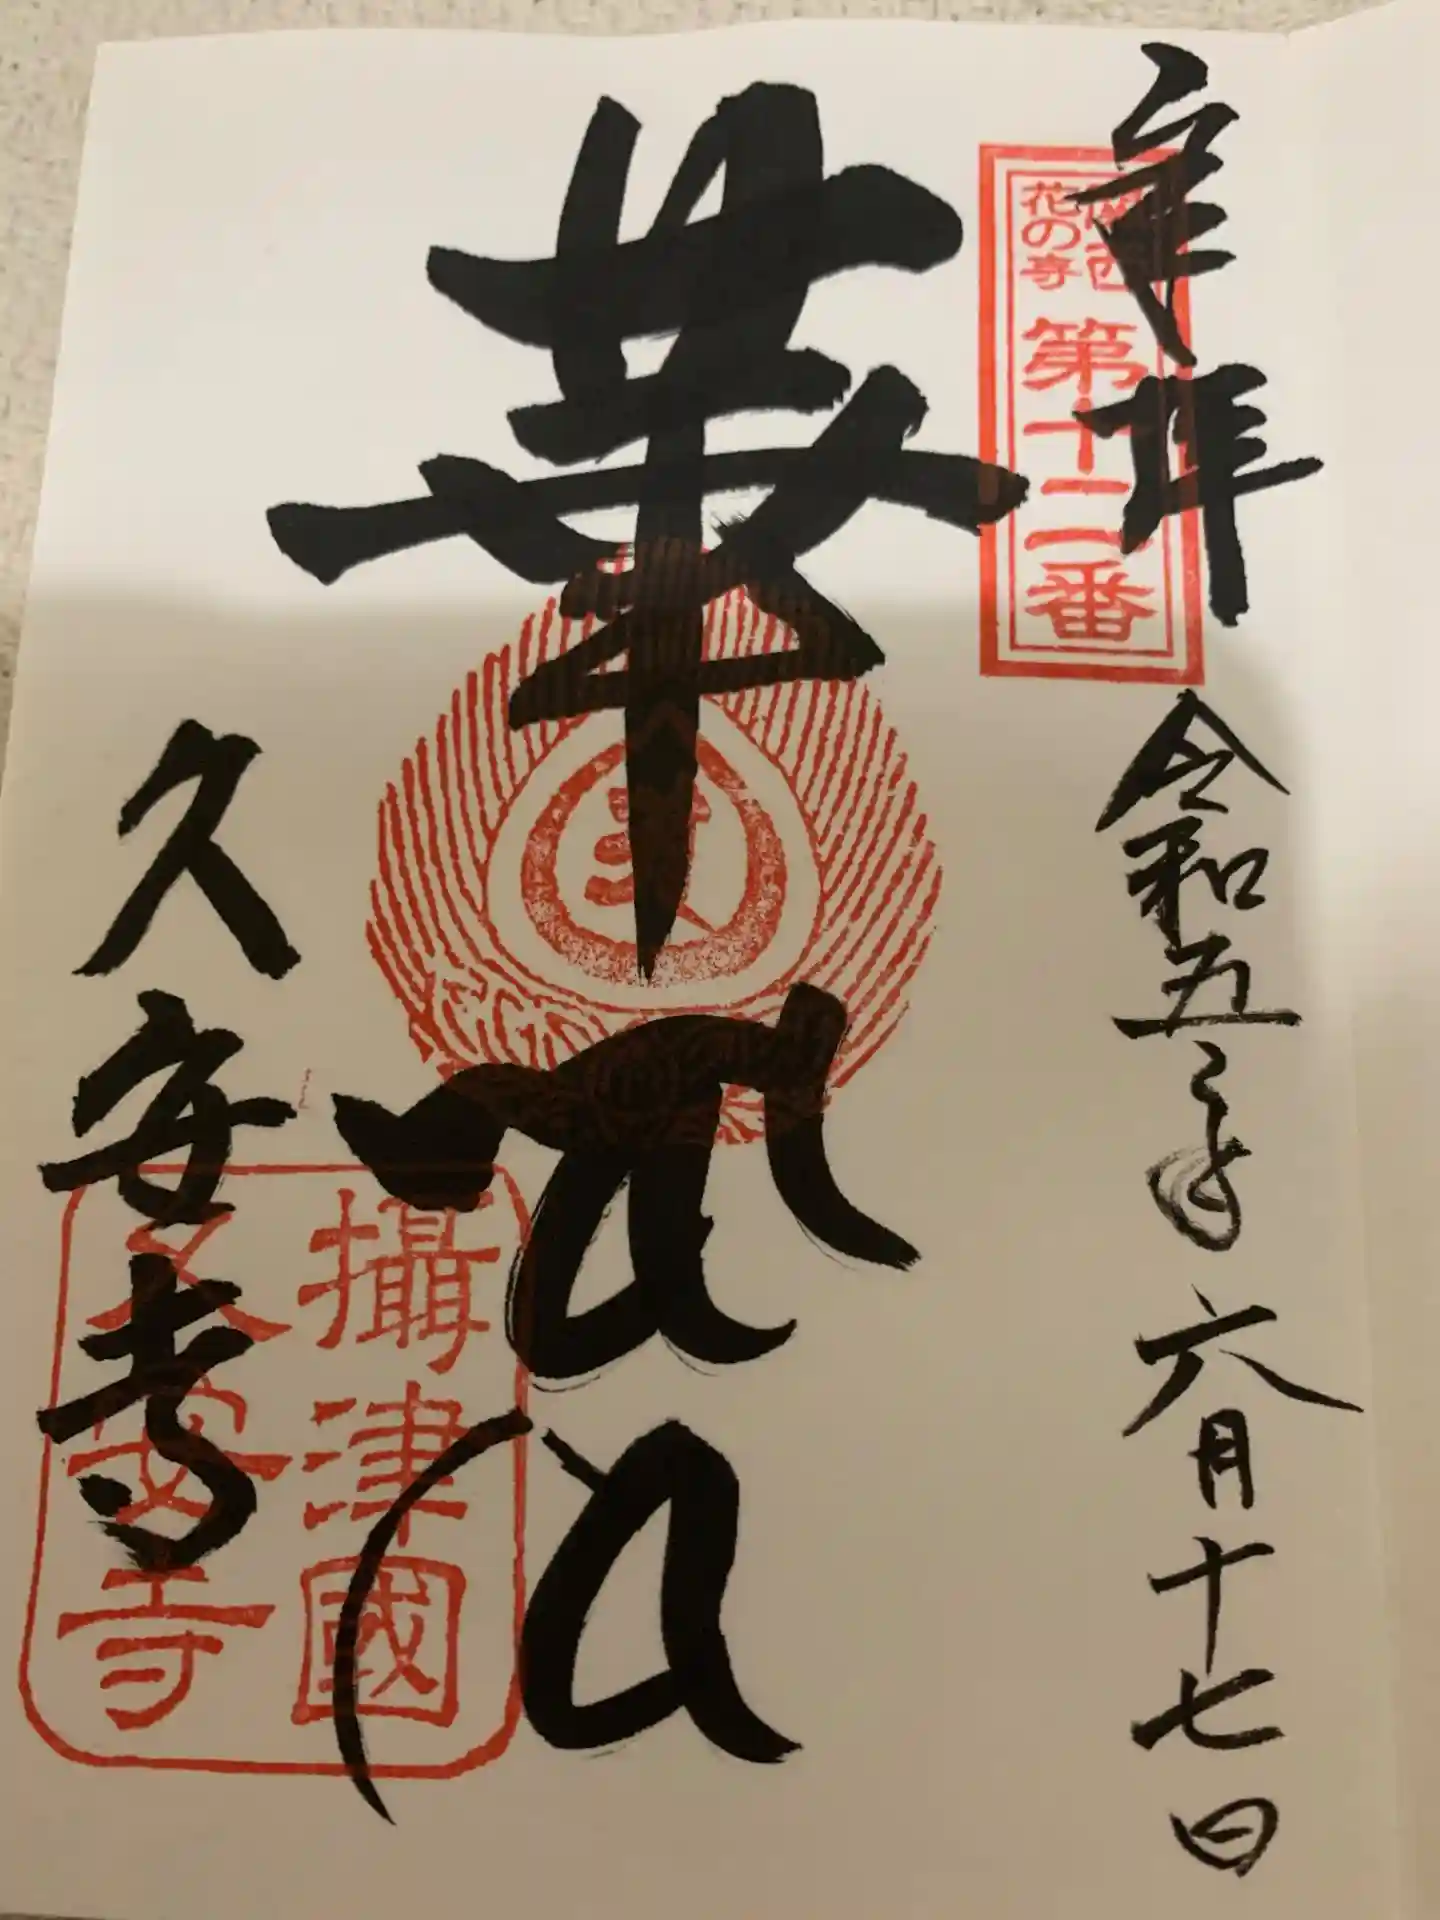 奉拝
令和五年六月十七日
関西
花の寺
第十二番
華
久安寺
攝津國
久安寺